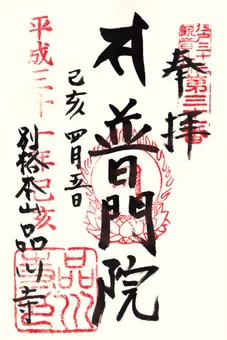 奉拝
第三番
普門院
己亥 四月五日
平成三十一年己亥
別格本山品川寺